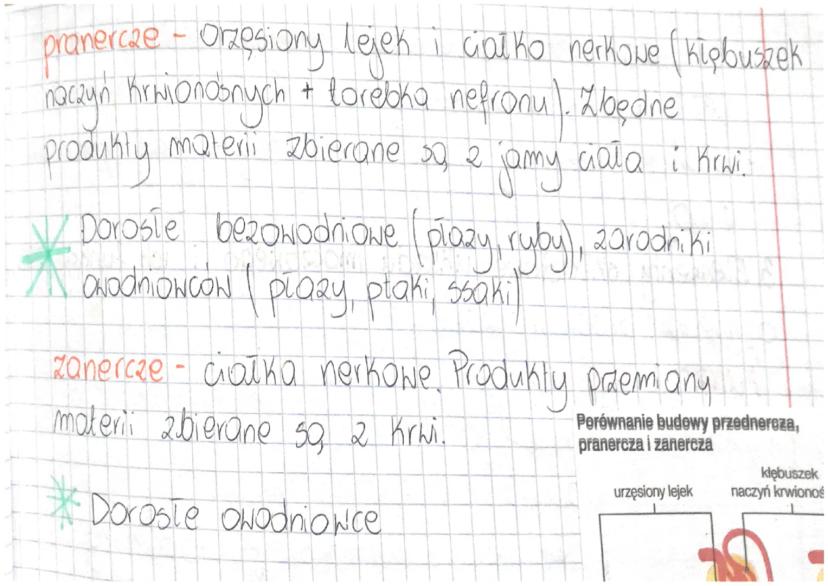 pranercze - Orzęsiony lejek i ciałko nerkowe (kłębuszek
naczyń krwionośnych + torebka nefronu). Zbędne
produkty materii zbierane są z jamy ciała i krwi.
Dorosłe bezowodniowe (płazy, ryby), zarodniki
owodniowców (płazy, ptaki, ssaki)
zanercze - ciałka nerkowe. Produkty przemiany
materii zbierane są z krwi.
Dorosłe owodniowce
Porównanie budowy przednercza,
pranercza i zanercza
kłębuszek
urzęsiony lejek naczyń krwionoś